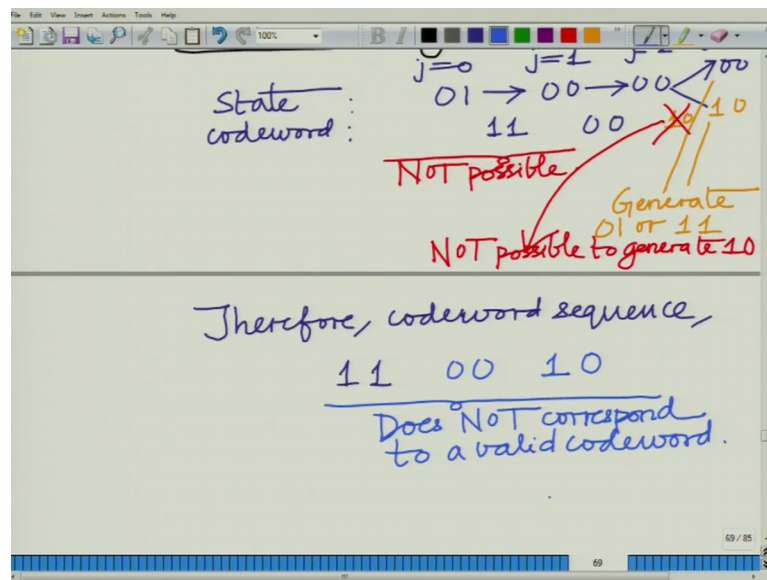 File Edit View Insert Actions Tools Help
100%
B I
j=0 j=1
00
State : 01 → 00 → 00
10
codeword : 11 00 10
NOT possible
Generate
01 or 11
NOT possible to generate 10
Therefore, codeword sequence,
11 00 10
Does NOT correspond
to a valid codeword.
69 / 85
69